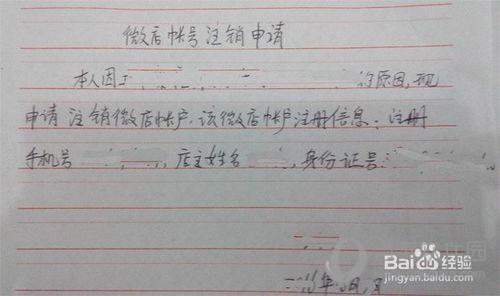 微店帐号注销申请
本人因 的原因,现
申请注销微店帐户.该微店帐户注册信息:注册
手机号 , 店主姓名 , 身份证号:
年 月 日
Baidu 百度 经验
jingyan.baidu.com